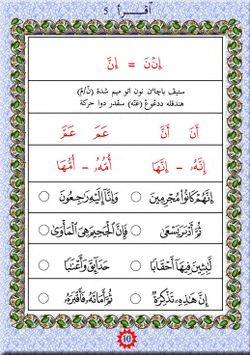 اقرأ 5
إِنْنَ = إِنَّ
ستيڤ باچاءن نون اتو ميم شدة (نّ/مّ)
هندقله ددڠوڠ (غنه) سقدر دوا حركة
أَنَ أَنَّ عَمَ عَمَّ
إِنَّهُۥ - إِنَّهَا أُمُّهُۥ - أُمُّهَا
إِنَّهُمْ كَانُوا۟ مُجْرِمِينَ وَإِنَّآ إِلَيْهِ رَٰجِعُونَ
ثُمَّ أَدْبَرَ يَسْعَىٰ فَإِنَّ ٱلْجَحِيمَ هِىَ ٱلْمَأْوَىٰ
لَّٰبِثِينَ فِيهَآ أَحْقَابًا حَدَآئِقَ وَأَعْنَٰبًا
إِنَّ هَٰذِهِۦ تَذْكِرَةٌ ثُمَّ أَمَاتَهُۥ فَأَقْبَرَهُۥ
10